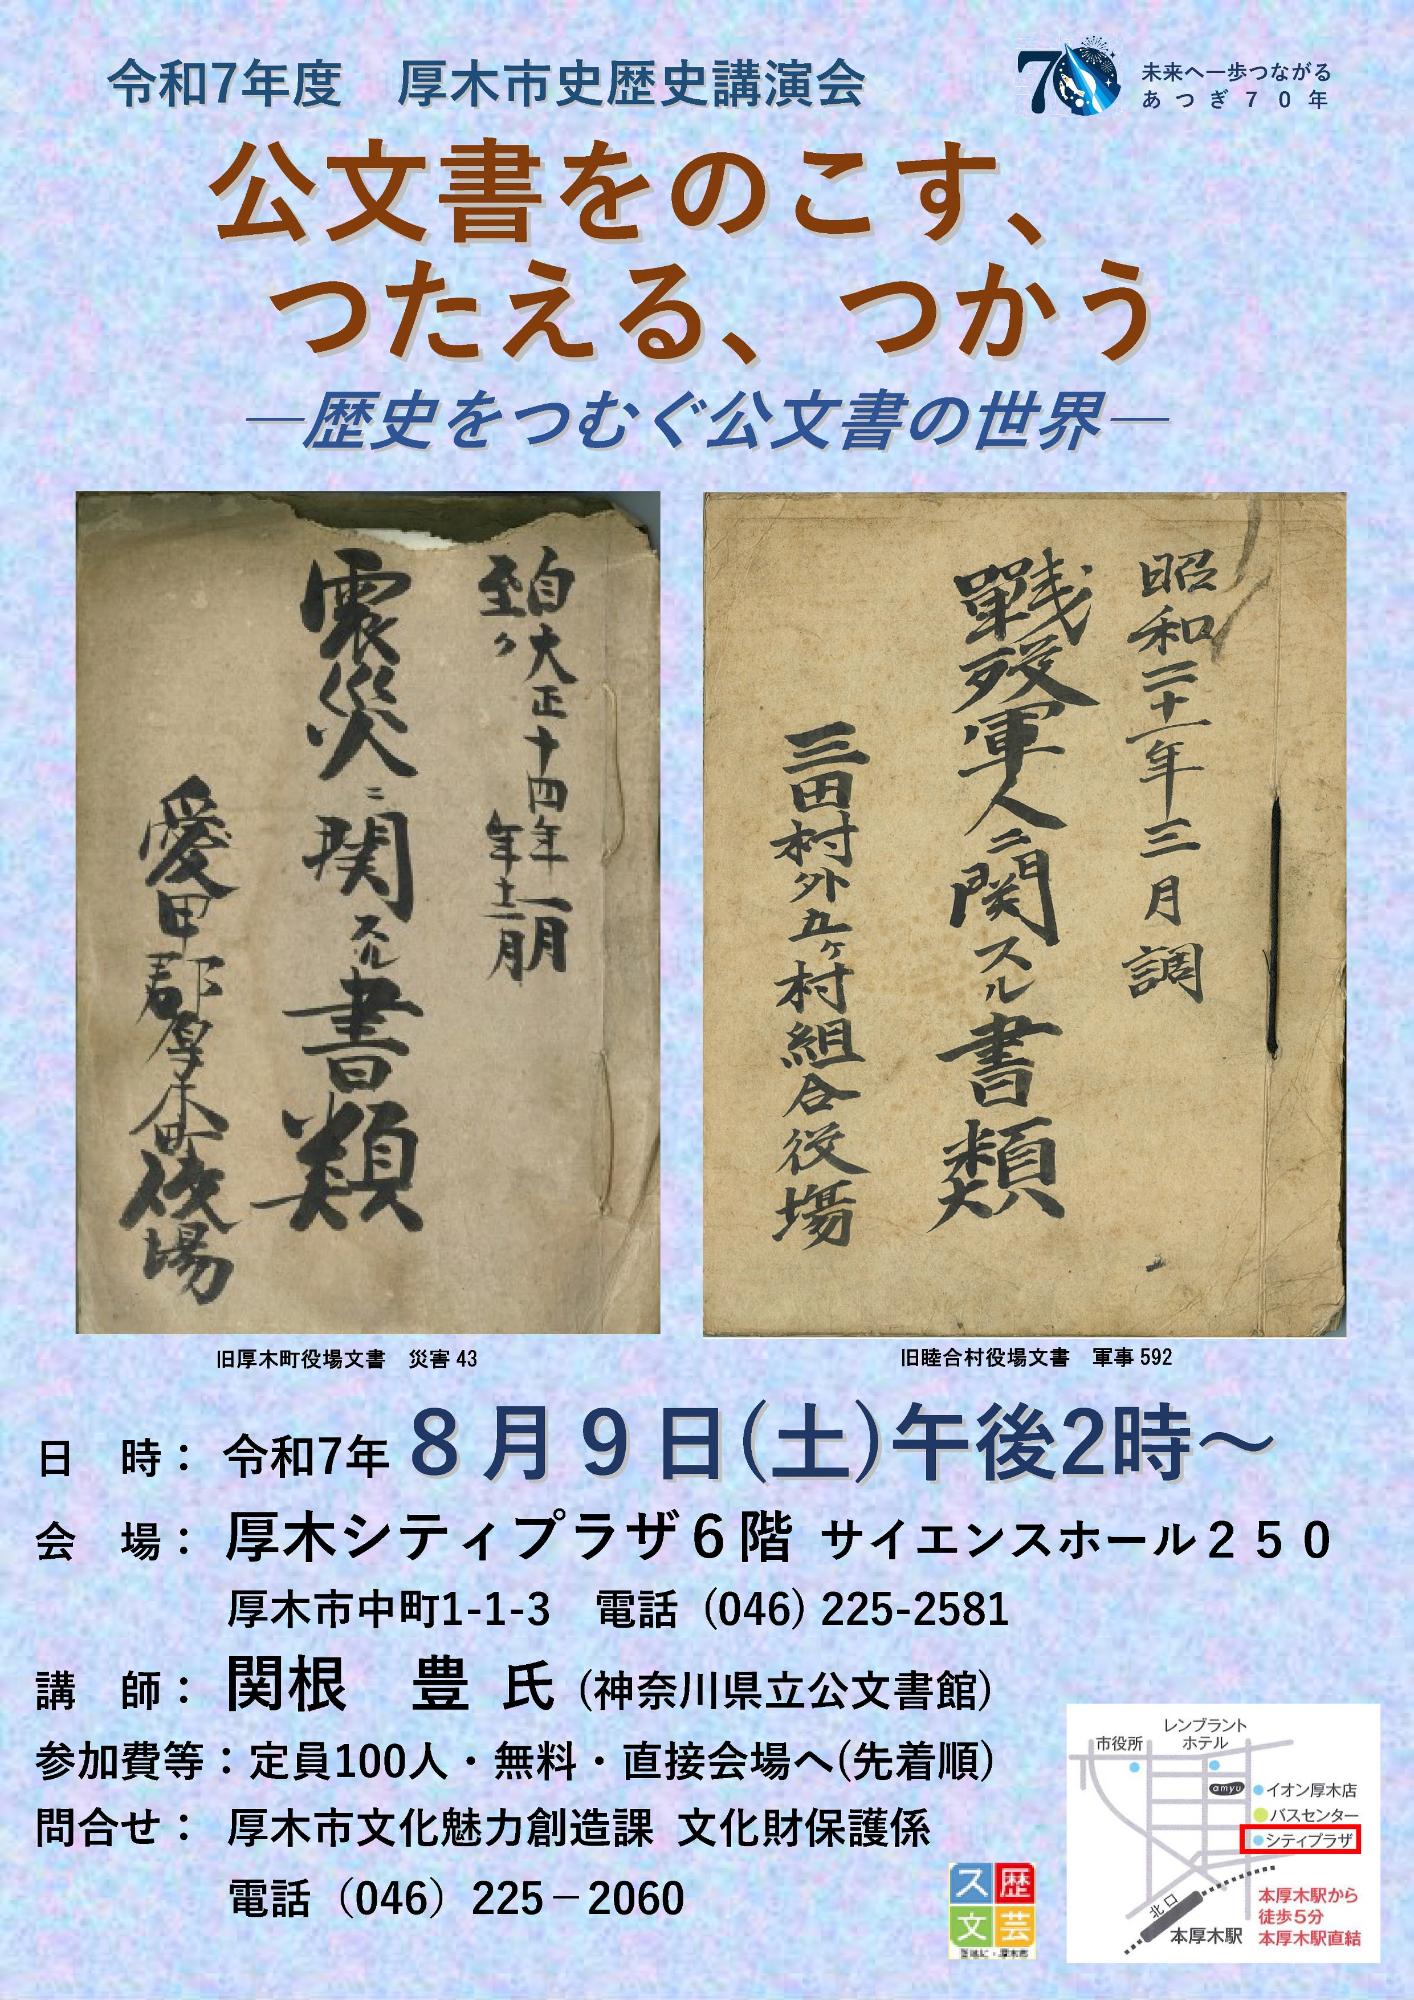 令和7年度　厚木市史歴史講演会
70
未来へ一歩つながる
あつぎ70年
公文書をのこす、
つたえる、つかう
―歴史をつむぐ公文書の世界―
自大正十四年一月
至〃年十二月
震災ニ関スル書類
愛甲郡厚木町役場
昭和二十一年三月調
戦歿軍人ニ関スル書類
三田村外五ヶ村組合役場
旧厚木町役場文書　災害 43
旧睦合村役場文書　軍事 592
日　時：令和7年 8月9日(土)午後2時～
会　場：厚木シティプラザ6階 サイエンスホール250
厚木市中町1-1-3　電話 (046) 225-2581
講　師：関根　豊 氏 (神奈川県立公文書館)
参加費等：定員100人・無料・直接会場へ(先着順)
問合せ：厚木市文化魅力創造課 文化財保護係
電話（046）225－2060
ス歴
文芸
レンブラント
ホテル
市役所
amyu
イオン厚木店
バスセンター
シティプラザ
北口
本厚木駅
本厚木駅から
徒歩5分
本厚木駅直結